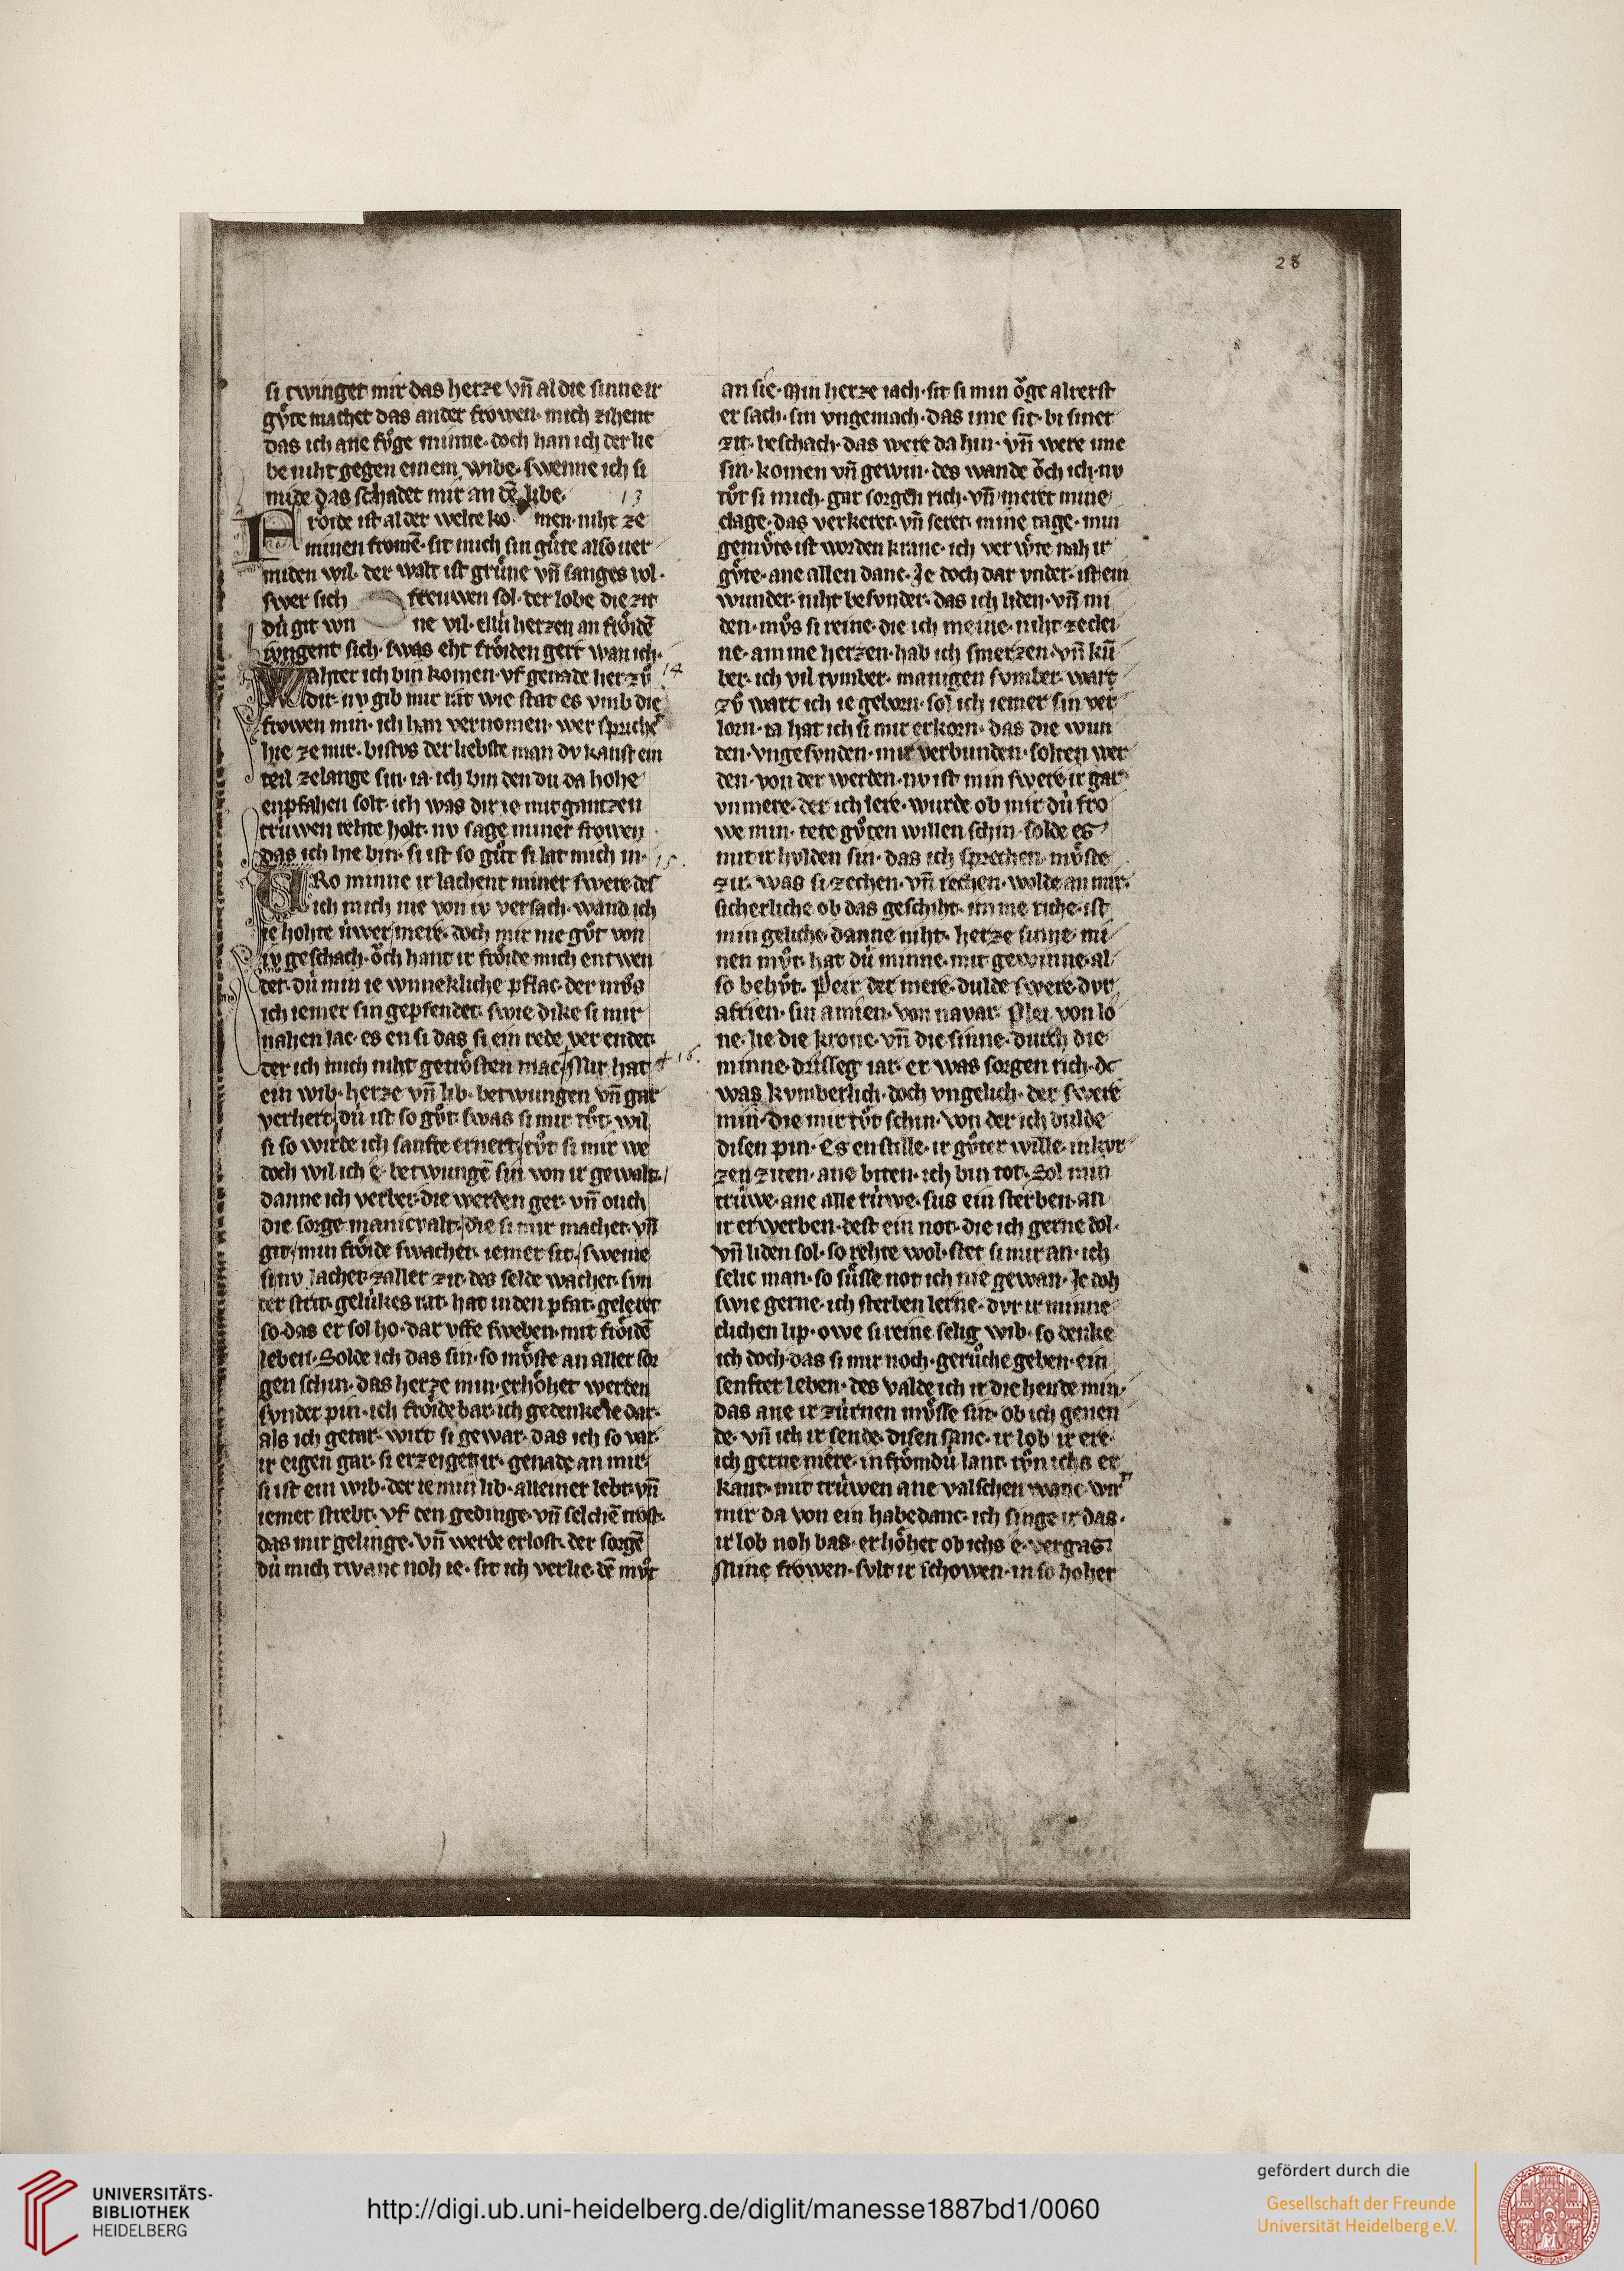 28
si twinget mir das herze vn̄ al die sinne ir
gv̊te machet das ander frowen· mich zihent
das ich ane fv̊ge minne· doch han ich der lie
be niht gegen einem wibe· swenne ich si
mide das schadet mir an dē libe· 13
Fröide ist al der welte ko men· niht ze
minen fromē· sit mich sin gůte also ver
miden wil· der walt ist grůne vn̄ sanges vol·
swer sich freuwen sol· der lobe die zit
dú git wn ne vil· ellú herzen an fröidē
ivngent sich· swas eht fröiden gert wan ich·
Wahter ich bin komen· vf genade her zv̊ 14
dir· nv gib mir rat wie stat es vmb die
frowen min· ich han vernomen· wer spriche
hie ze mir· bistvs der liebste man dv kanst ein
teil zelange sin· ia· ich bin den du da hohe
enpfahen solt· ich was dir ie mit gantzen
trúwen rehte holt· nv sage miner frowen
das ich hie bin· si ist so gůt si lat mich in· 15·
FRo minne ir lachent miner swere des
ich mich nie von iv versach· wand ich
ie hohte úwer mere· doch mir nie gv̊t von
iv geschach· ŏch hant ir fröide mich entwen
det· dú min ie wunekliche pflac· der mv̊s
ich iemer sin gepfendet· swie dike si mir
nahen lac· es en si das si ein rede ver endet·
der ich mich niht getrösten mac· Mir hat 16.
ein wib· herze vn̄ lib· betwungen vn̄ gar
verhert dú ist so gv̊t· swas si mir tv̊t· wil
si so wirde ich sanfte ernert tv̊t si mir we
doch wil ich e· betwungē sin von ir gewalt·
danne ich verber· die werden ger· vn̄ ouch
die sorge manicvalt· die si mir machet· vn̄
git· min fröide swachet· iemer sit· swenne
si nv lachet· zaller zit· des selde wachet· svn
der strit· gelúkes rat· hat in den pfat· geleret
so· das er sol ho· dar vffe sweben· mit fröidē
leben· Solde ich das sin· so mv̊ste an aller sor
gen schin· das herze min· erhöhet werden
svnder pin· ich fröidebar· ich gedenke ie dar·
als ich getar· wirt si gewar· das ich so var·
ir eigen gar· si erzeiget ir· genade an mir·
si ist ein wib· der ie min lib· alleiner lebt· vn̄
iemer strebt· vf den gedinge· vn̄ selchē trost·
das mir gelinge· vn̄ werde erlost· der sorgē
dú mich twanc noh ie· sit ich verlie· dē mv̊t
an sie· Min herze iach· sit si min ŏge alrerst
er sach· sin vngemach· das ime sit· bi siner
zit· beschach· das were da hin· vn̄ were ime
sin· komen vn̄ gewin· des wande ŏch ich· nv
tv̊t si mich· gar sorgen rich· vn̄ meret mine
clage· das verkeret· vn̄ seret· mine tage· min
gemv̊te ist worden kranc· ich ver wůte nah ir
gv̊te· ane allen danc· Je doch dar vnder· ist ein
wunder· niht besvnder· das ich liden· vn̄ mi
den· mv̊s si reine· die ich meine· niht ze clei
ne· an ime herzen· hab ich smerzen· vn̄ kū
ber· ich vil tvmber· manigen svmber· wart
zv̊ wart ich ie geborn· sol ich iemer sin ver
lorn· ia hat ich si mir erkorn· das die wun
den· vnge svnden· mir verbunden· solten wer
den· von der werden· nv ist min swere· ir gar
vnmere· der ich lere· wurde ob mir dú fro
we min· tete gv̊ten willen schin· solde es
mit ir hvlden sin· das ich sprechen· mv̊ste
zir· was si zechen· vn̄ rechen· wolde an mir·
sicherliche ob das geschiht· in me riche· ist
min geliche danne niht· herze sinne· mi
nen mv̊t· hat dú minne· mit gewinne· al
so behv̊t· Peir der mere· dulde swere· dvr
afrien· sin amien· von navar· Plei von lo
ne· lie die krone· vn̄ die sinne· durch die
minne drisseg iar· er was sorgen rich· dc
was kvmberlich· doch vngelich· der swere
min· die mir tv̊t schin· von der ich dulde
disen pin· Es en stille· ir gv̊ter wille· in kvr
zen ziten· ane biten· ich bin tot· Sol min
trúwe· ane alle rúwe· sus ein sterben· an
ir erwerben· dest ein not· die ich gerne dol·
vn̄ liden sol· so rehte wol· stet si mir an· ich
selic man· so sůsse not ich nie gewan· Je doh
swie gerne· ich sterben lerne· dvr ir minne
clichen lip· owe si reine selig wib· so denke
ich doch· das si mir noch· gerůche geben· ein
senfter leben· des valde ich ir die hende min·
das ane ir zúrnen mv̊sse sin· ob ich genen
de· vn̄ ich ir sende· disen sanc· ir lob ir ere·
ich gerne mere· in frömdú lant· tv̊n ichs er
kant· mit trúwen ane valschen wanc wir
mir da von ein habedanc· ich singe ir das·
ir lob noh bas· erhöhet ob ichs e· vergas·
Mine frowen· svlt ir schowen· in so hoher
UNIVERSITÄTS-
BIBLIOTHEK
HEIDELBERG
http://digi.ub.uni-heidelberg.de/diglit/manesse1887bd1/0060
gefördert durch die
Gesellschaft der Freunde
Universität Heidelberg e.V.